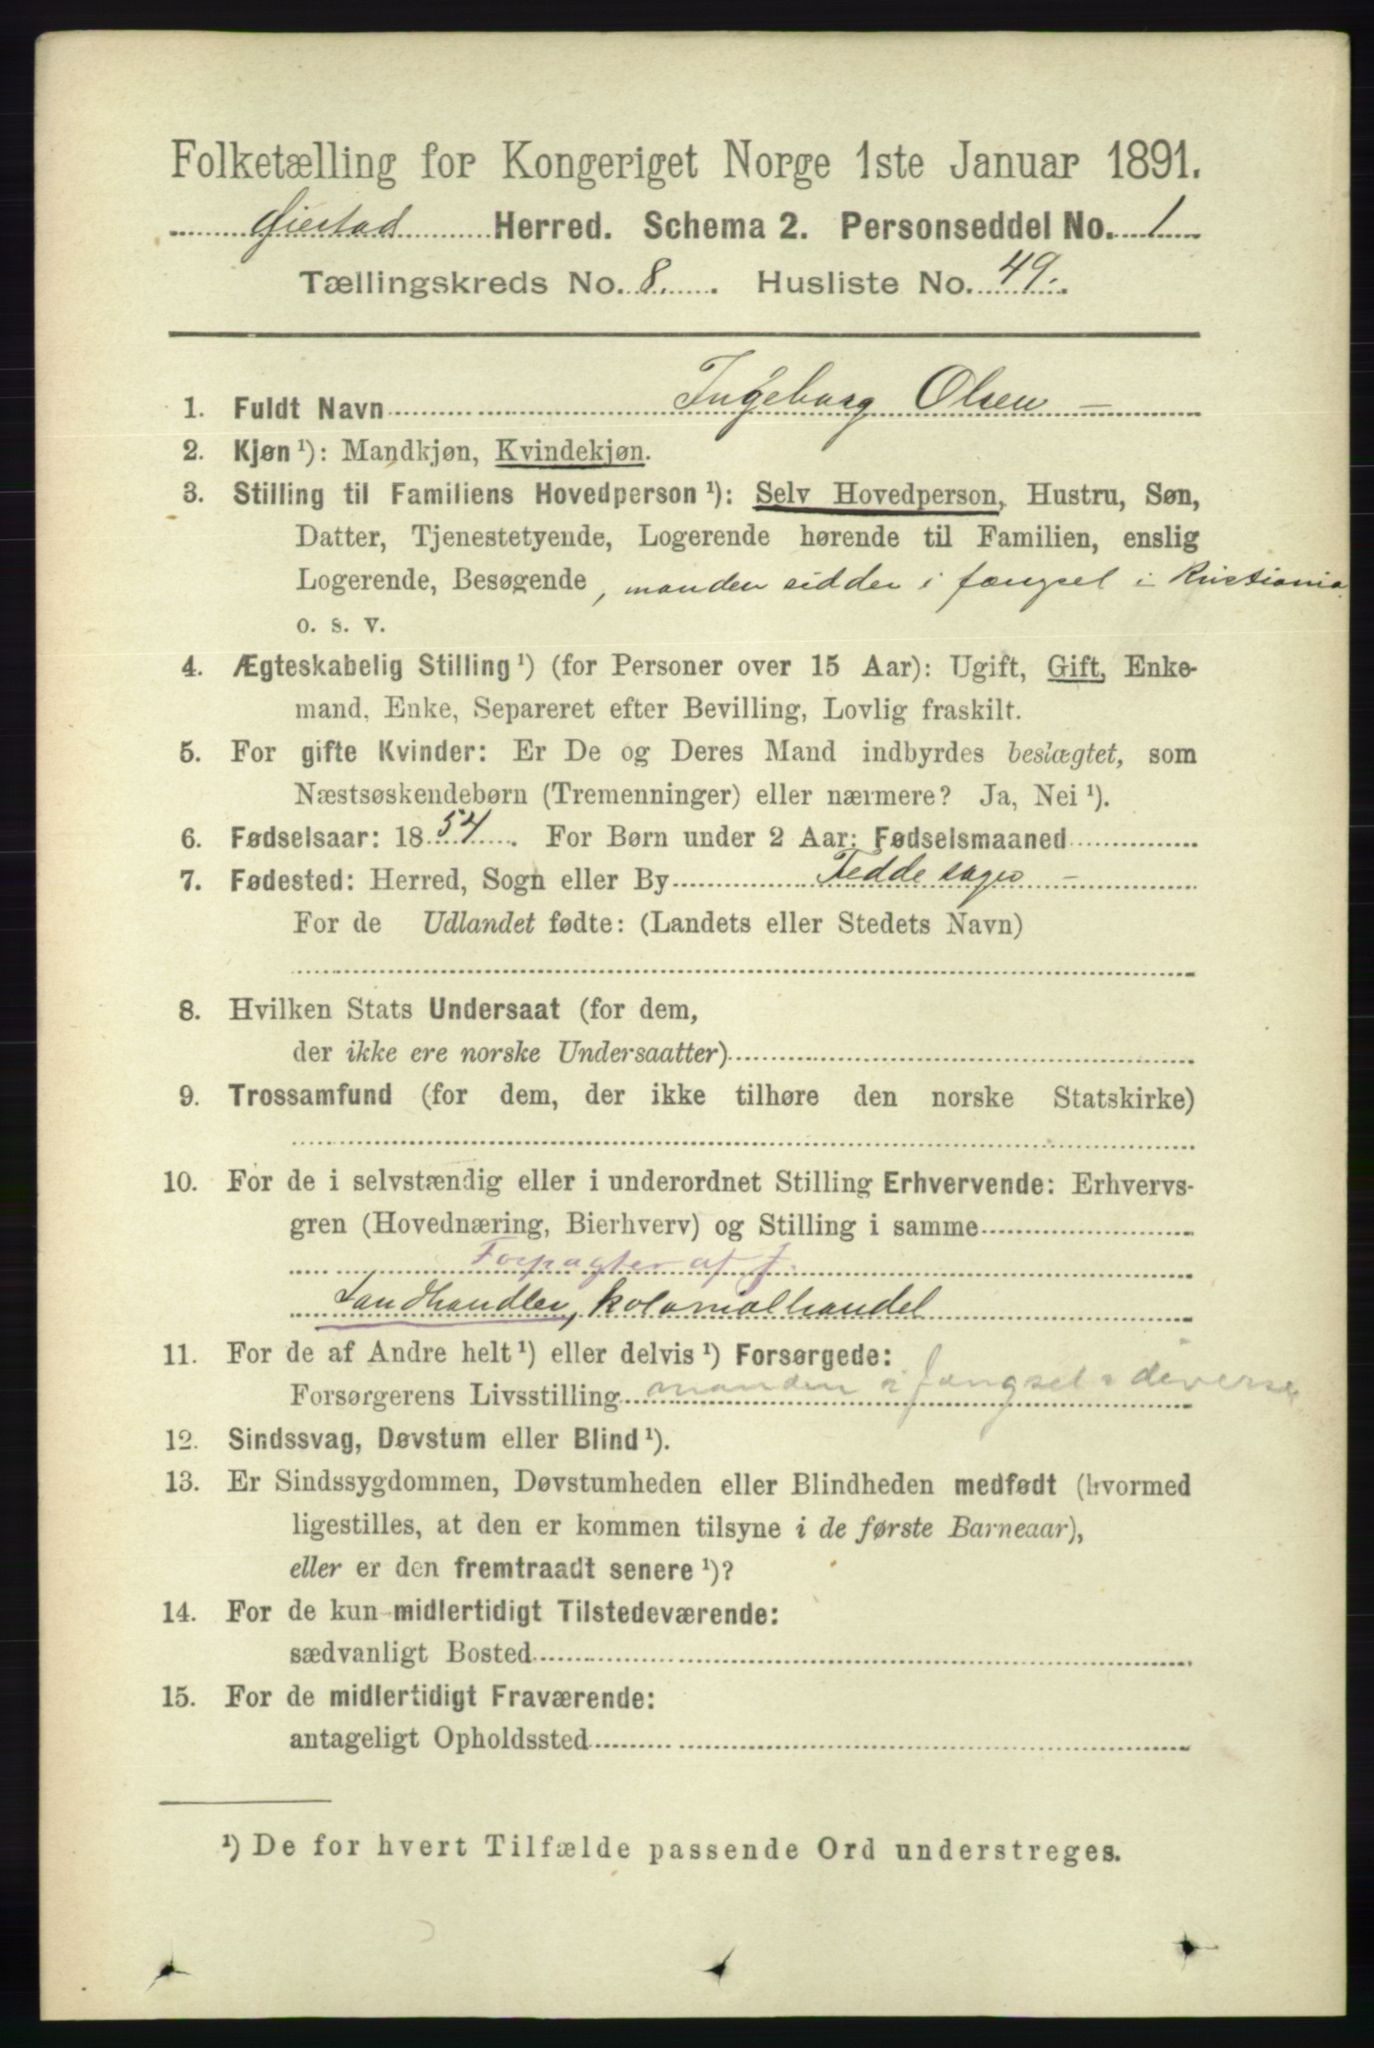 Folketælling for Kongeriget Norge 1ste Januar 1891.
Øiestad Herred. Schema 2. Personseddel No. 1
Tællingskreds No. 8. Husliste No. 49.
1. Fuldt Navn Ingeborg Olsen
2. Kjøn¹): Mandkjøn, Kvindekjøn.
3. Stilling til Familiens Hovedperson¹): Selv Hovedperson, Hustru, Søn,
Datter, Tjenestetyende, Logerende hørende til Familien, enslig
Logerende, Besøgende, manden sidder i fængsel i Kristiania
o. s. v.
4. Ægteskabelig Stilling¹) (for Personer over 15 Aar): Ugift, Gift, Enke-
mand, Enke, Separeret efter Bevilling, Lovlig fraskilt.
5. For gifte Kvinder: Er De og Deres Mand indbyrdes beslægtet, som
Næstsøskendebørn (Tremenninger) eller nærmere? Ja, Nei¹).
6. Fødselsaar: 1854. For Børn under 2 Aar: Fødselsmaaned
7. Fødested: Herred, Sogn eller By Fedde sogn
For de Udlandet fødte: (Landets eller Stedets Navn)
8. Hvilken Stats Undersaat (for dem,
der ikke ere norske Undersaatter)
9. Trossamfund (for dem, der ikke tilhøre den norske Statskirke)
10. For de i selvstændig eller i underordnet Stilling Erhvervende: Erhvervs-
gren (Hovednæring, Bierhverv) og Stilling i samme
Forpagter af J.
Landhandler, kolonialhandel
11. For de af Andre helt¹) eller delvis¹) Forsørgede:
Forsørgerens Livsstilling manden i fængsel diverse
12. Sindssvag, Døvstum eller Blind¹).
13. Er Sindssygdommen, Døvstumheden eller Blindheden medfødt (hvormed
ligestilles, at den er kommen tilsyne i de første Barneaar),
eller er den fremtraadt senere¹)?
14. For de kun midlertidigt Tilstedeværende:
sædvanligt Bosted
15. For de midlertidigt Fraværende:
antageligt Opholdssted
¹) De for hvert Tilfælde passende Ord understreges.